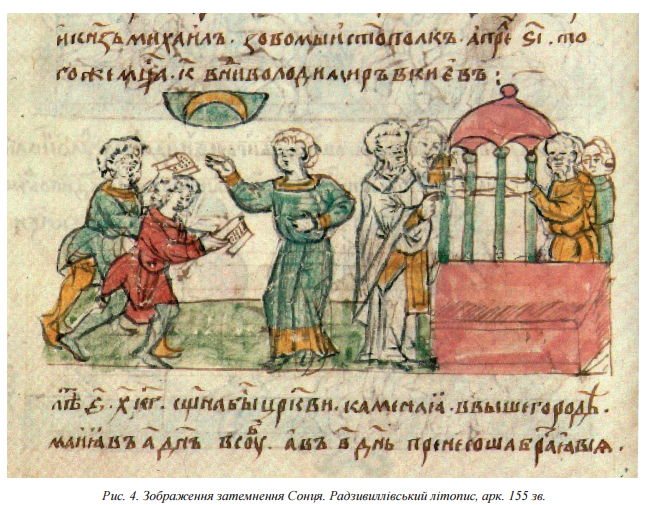 и кнѧзь михаилъ · зовомыи ст҃ополкъ · апрѣ · ѕı҃ · то
гоже мц҃а · к҃ · володимиръ в києвъ :
сщ҃на бы црк҃ви · каменаıа · вышегородѣ ·
маиıа въ а҃ дн҃ь в соуб · а въ в҃ дн҃ь пренесоша
Рис. 4. Зображення затемнення Сонця. Радзивиллівський літопис, арк. 155 зв.